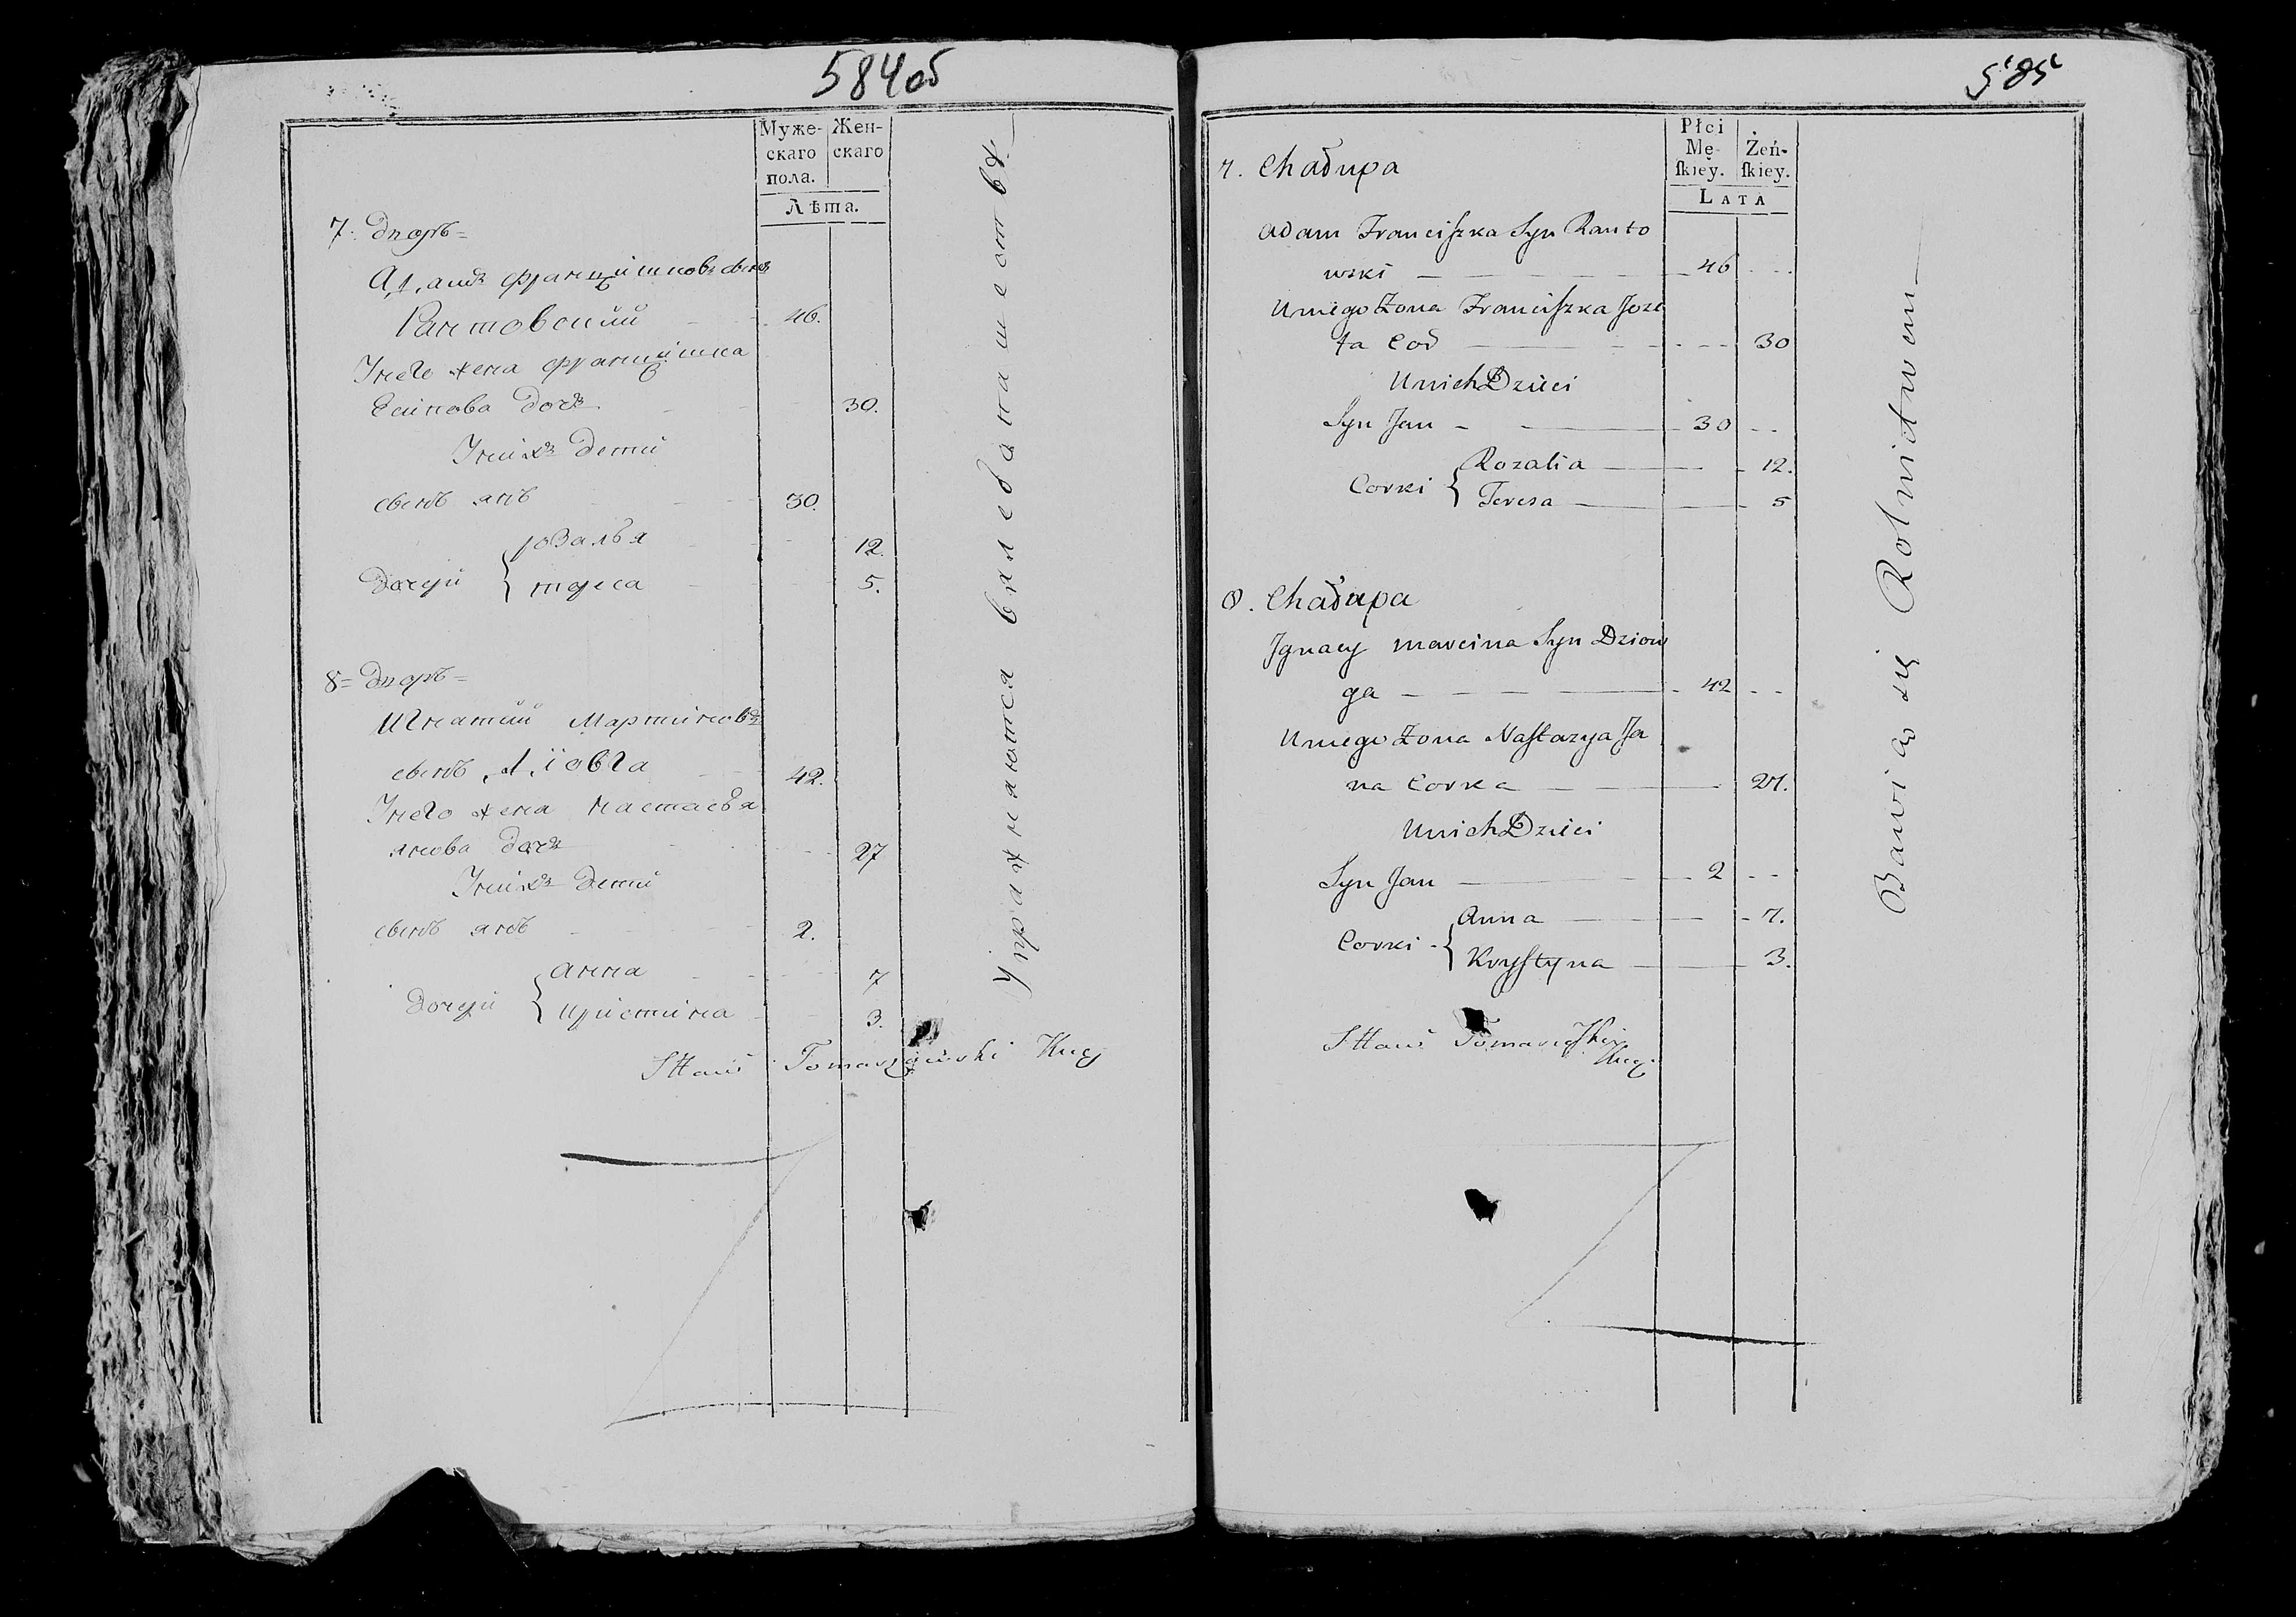 584об
Муже-
скаго
пола.
Жен-
скаго
Лѣта.
7. Дворъ=
Адамъ Францишковъ сынъ
Рантовский 46.
У него жена Францишка
Есипова дочь 30.
У нихъ дети
сынъ янъ 30.
розалья 12.
дочери { тереса 5.
8= Дворъ=
Игнатий Мартиновъ
сынъ Дiовга 42.
У него жена настасья
янова дочь 27
У нихъ дети
сынъ янъ 2.
анна 7
дочери { кристина 3.
Упражняются в хлебапашестве.
Sttani Tomaszewski Xiąz
585
Płci
Mę-
ſkiey.
Żeń-
ſkiey.
LATA
7. Chadupa
Adam Franciſzka Syn Ranto
wski 46
U niego Żona Franciſzka Joze
fa Cod 30
U nich Dzieci
Syn Jan 30
Rozalia 12.
Corki { Teresa 5
8. Chadupa
Jgnacy Marcina Syn Dziow
ga 42
U niego Żona Naſtazya Ja
na Corka 27.
U nich Dzieci
Syn Jan 2
Anna 7.
Corki { Kryſtyna 3.
Bawią się Rolnictwem